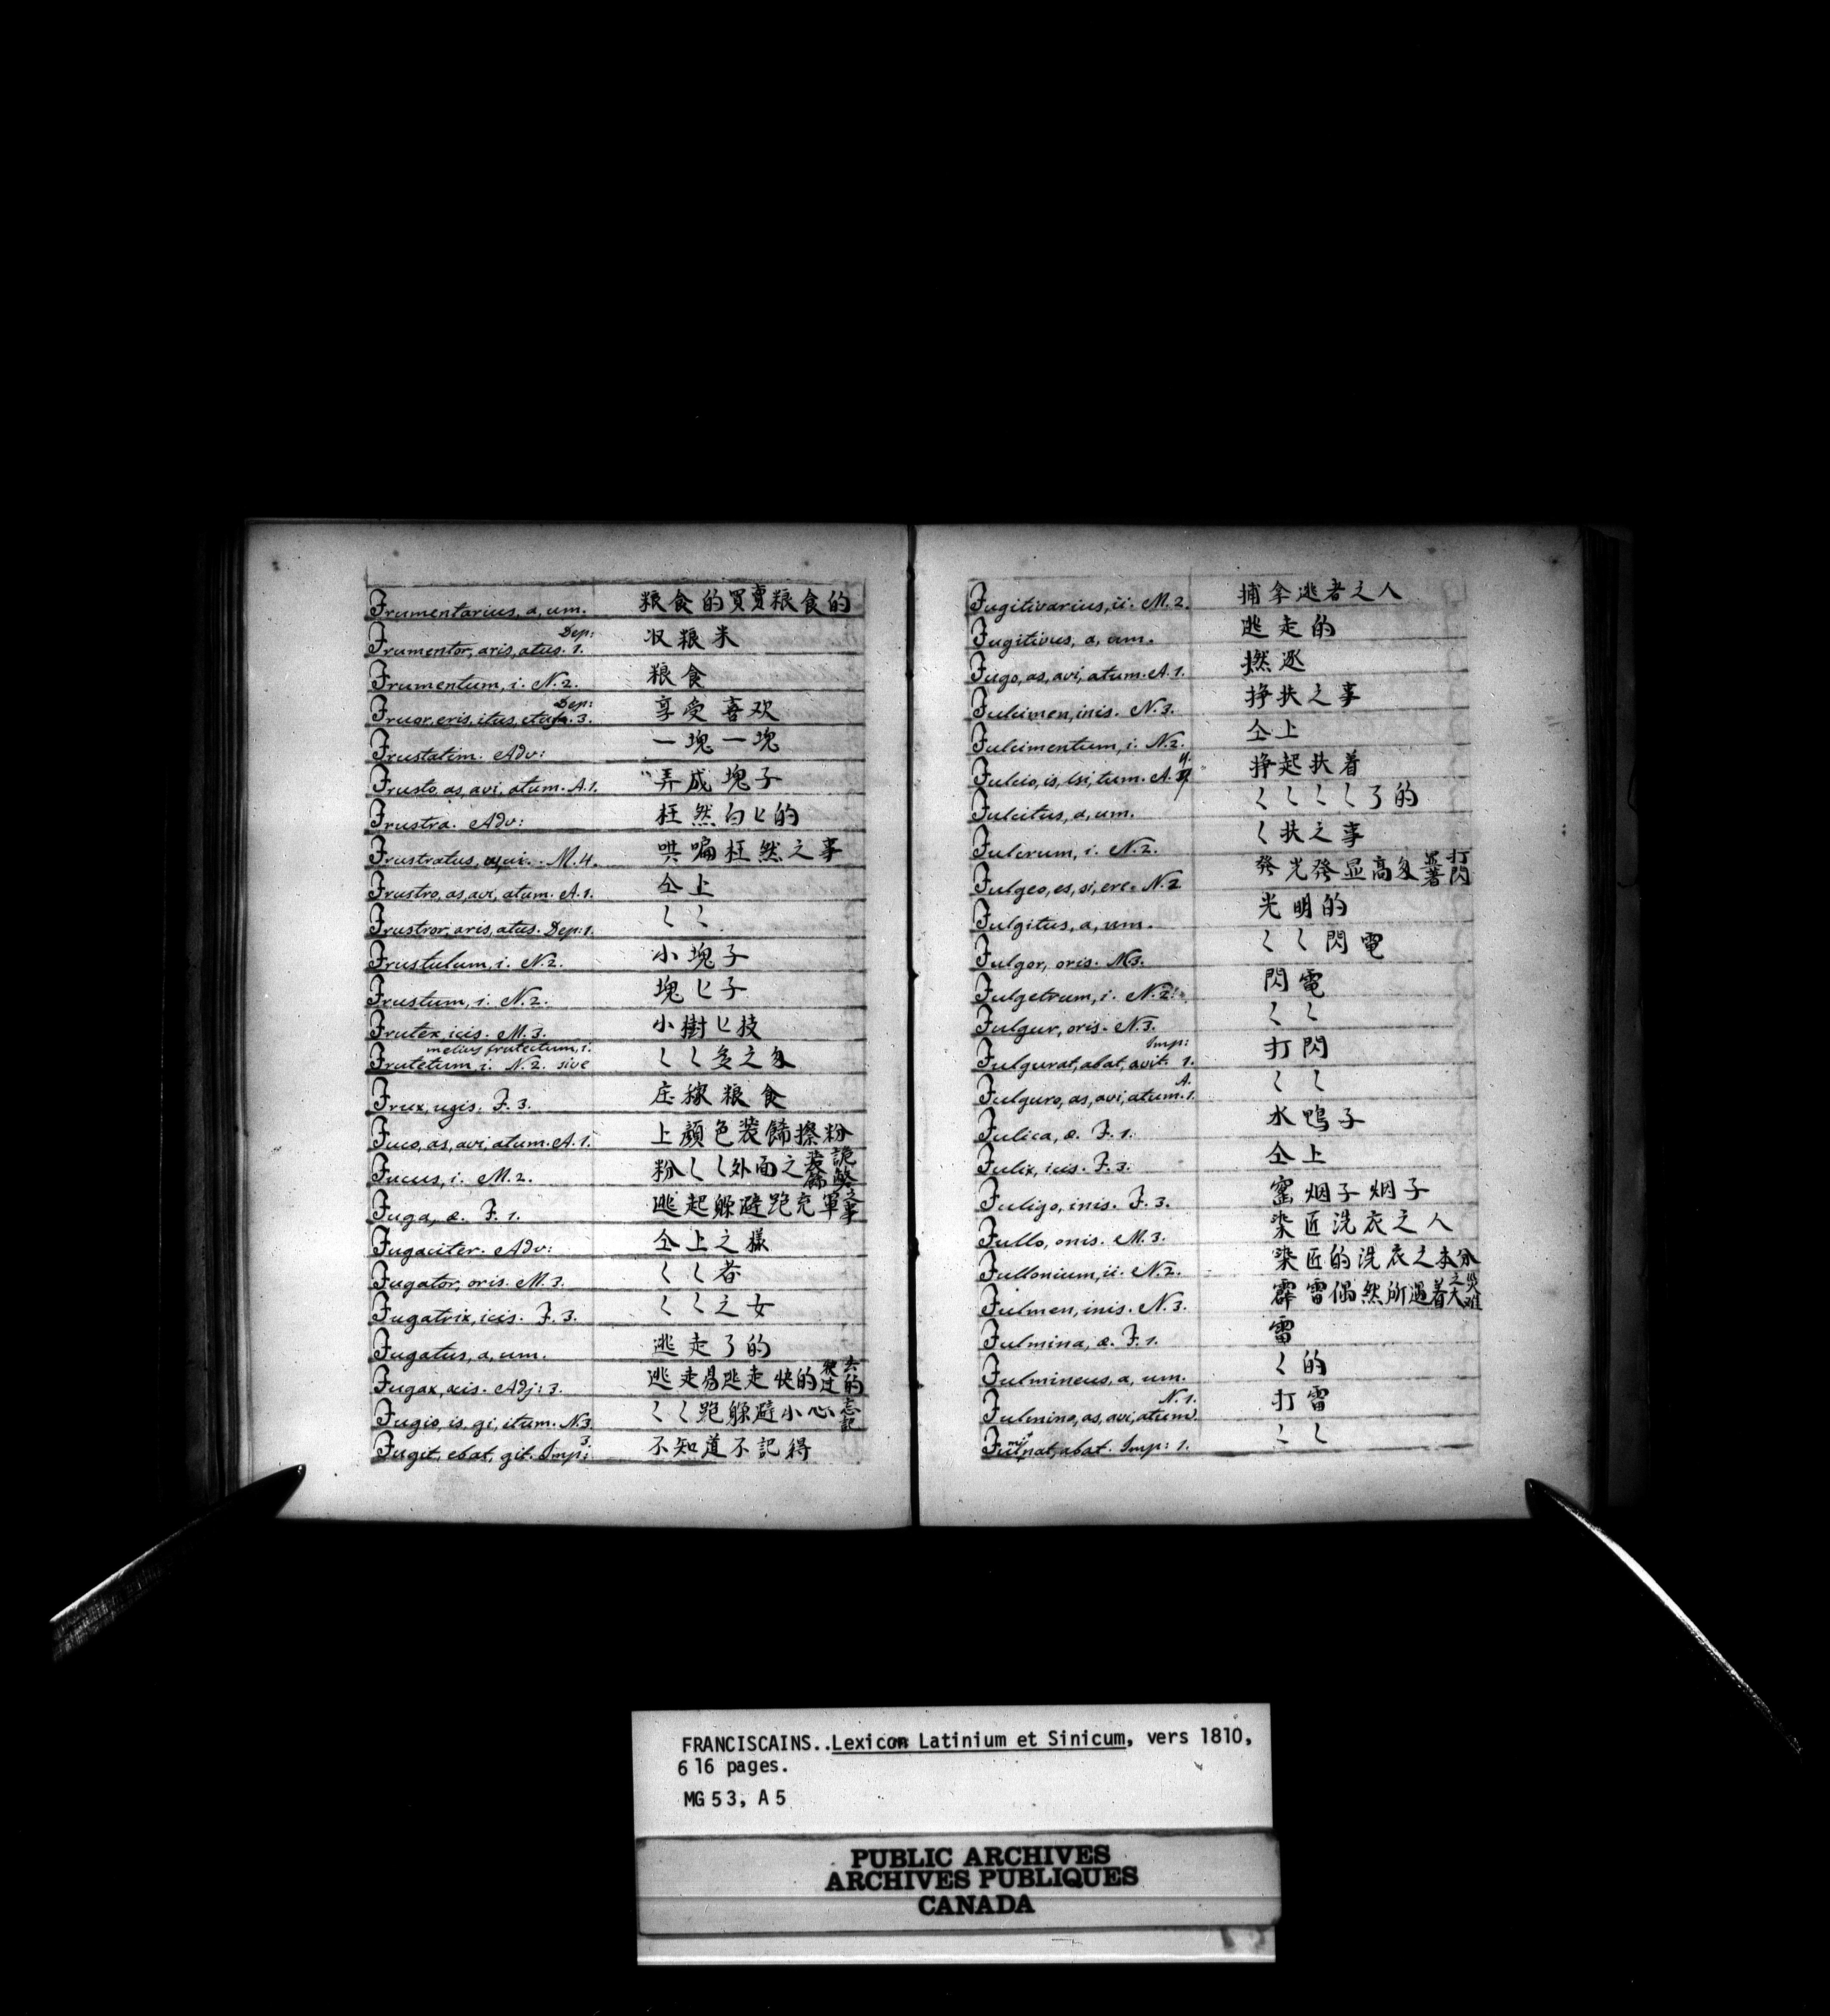 Frumentarius, a, um. 粮食的買賣粮食的
Frumentor, aris, atus. Dep: 1. 収粮米
Frumentum, i. N. 2. 粮食
Fruor, eris, itus, Dep: 3. 享受喜欢
Frustatim. Adv: 一塊一塊
Frusto, as, avi, atum. A. 1. 弄成塊子
Frustra. Adv: 枉然白匕的
Frustratus, ui. M. 4. 哄騙枉然之事
Frustro, as, avi, atum. A. 1. 仝上
Frustror, aris, atus. Dep: 1. 〱〱
Frustulum, i. N. 2. 小塊子
Frustum, i. N. 2. 塊匕子
Frutex, icis. M. 3. 小樹匕技
Frutetum, i. N. 2. sive melius frutectum, i. 〱〱多之处
Frux, ugis. F. 3. 庄稼粮食
Fuco, as, avi, atum. A. 1. 上顏色装飾搽粉
Fucus, i. M. 2. 粉〱〱外面之装飾詭
Fuga, æ. F. 1. 逃起躲避跑充軍之事
Fugaciter. Adv: 仝上之樣
Fugator, oris. M. 3. 〱〱者
Fugatrix, icis. F. 3. 〱〱之女
Fugatus, a, um. 逃走了的
Fugax, acis. Adj: 3. 逃走易逃走快的快过去的
Fugio, is, gi, itum. N. 3. 〱〱跑躲避小心忘記
Fugit, ebat, git. Imp: 3. 不知道不記得
Fugitivarius, ii. M. 2. 捕拿逃者之人
Fugitivus, a, um. 逃走的
Fugo, as, avi, atum. A. 1. 撚逐
Fulcimen, inis. N. 3. 掙扶之事
Fulcimentum, i. N. 2. 仝上
Fulcio, is, lsi, tum. A. 4. 掙起扶着
Fulcitus, a, um. 〱〱〱〱了的
Fulcrum, i. N. 2. 〱扶之事
Fulgeo, es, si, ere. N. 2 發光發显高名著打閃
Fulgitus, a, um. 光明的
Fulgor, oris. M 3. 〱〱閃電
Fulgetrum, i. N. 2. 閃電
Fulgur, oris. N. 3. 〱〱
Fulgurat, abat, avit. Imp: 1. 打閃
Fulguro, as, avi, atum. A. 1. 〱〱
Fulica, æ. F. 1. 水鴨子
Fulix, icis. F. 3. 仝上
Fuligo, inis. F. 3. 窰烟子烟子
Fullo, onis. M. 3. 染匠洗衣之人
Fullonium, ii. N. 2. 染匠的洗衣之本分
Fulmen, inis. N. 3. 霹雷偶然所遇着之大災难
Fulmina, æ. F. 1. 雷
Fulmineus, a, um. 〱的
Fulmino, as, avi, atum. N. 1. 打雷
Fulminat, abat. Imp: 1. 〱〱
FRANCISCAINS..Lexicon Latinium et Sinicum, vers 1810,
616 pages.
MG 53, A 5
PUBLIC ARCHIVES
ARCHIVES PUBLIQUES
CANADA